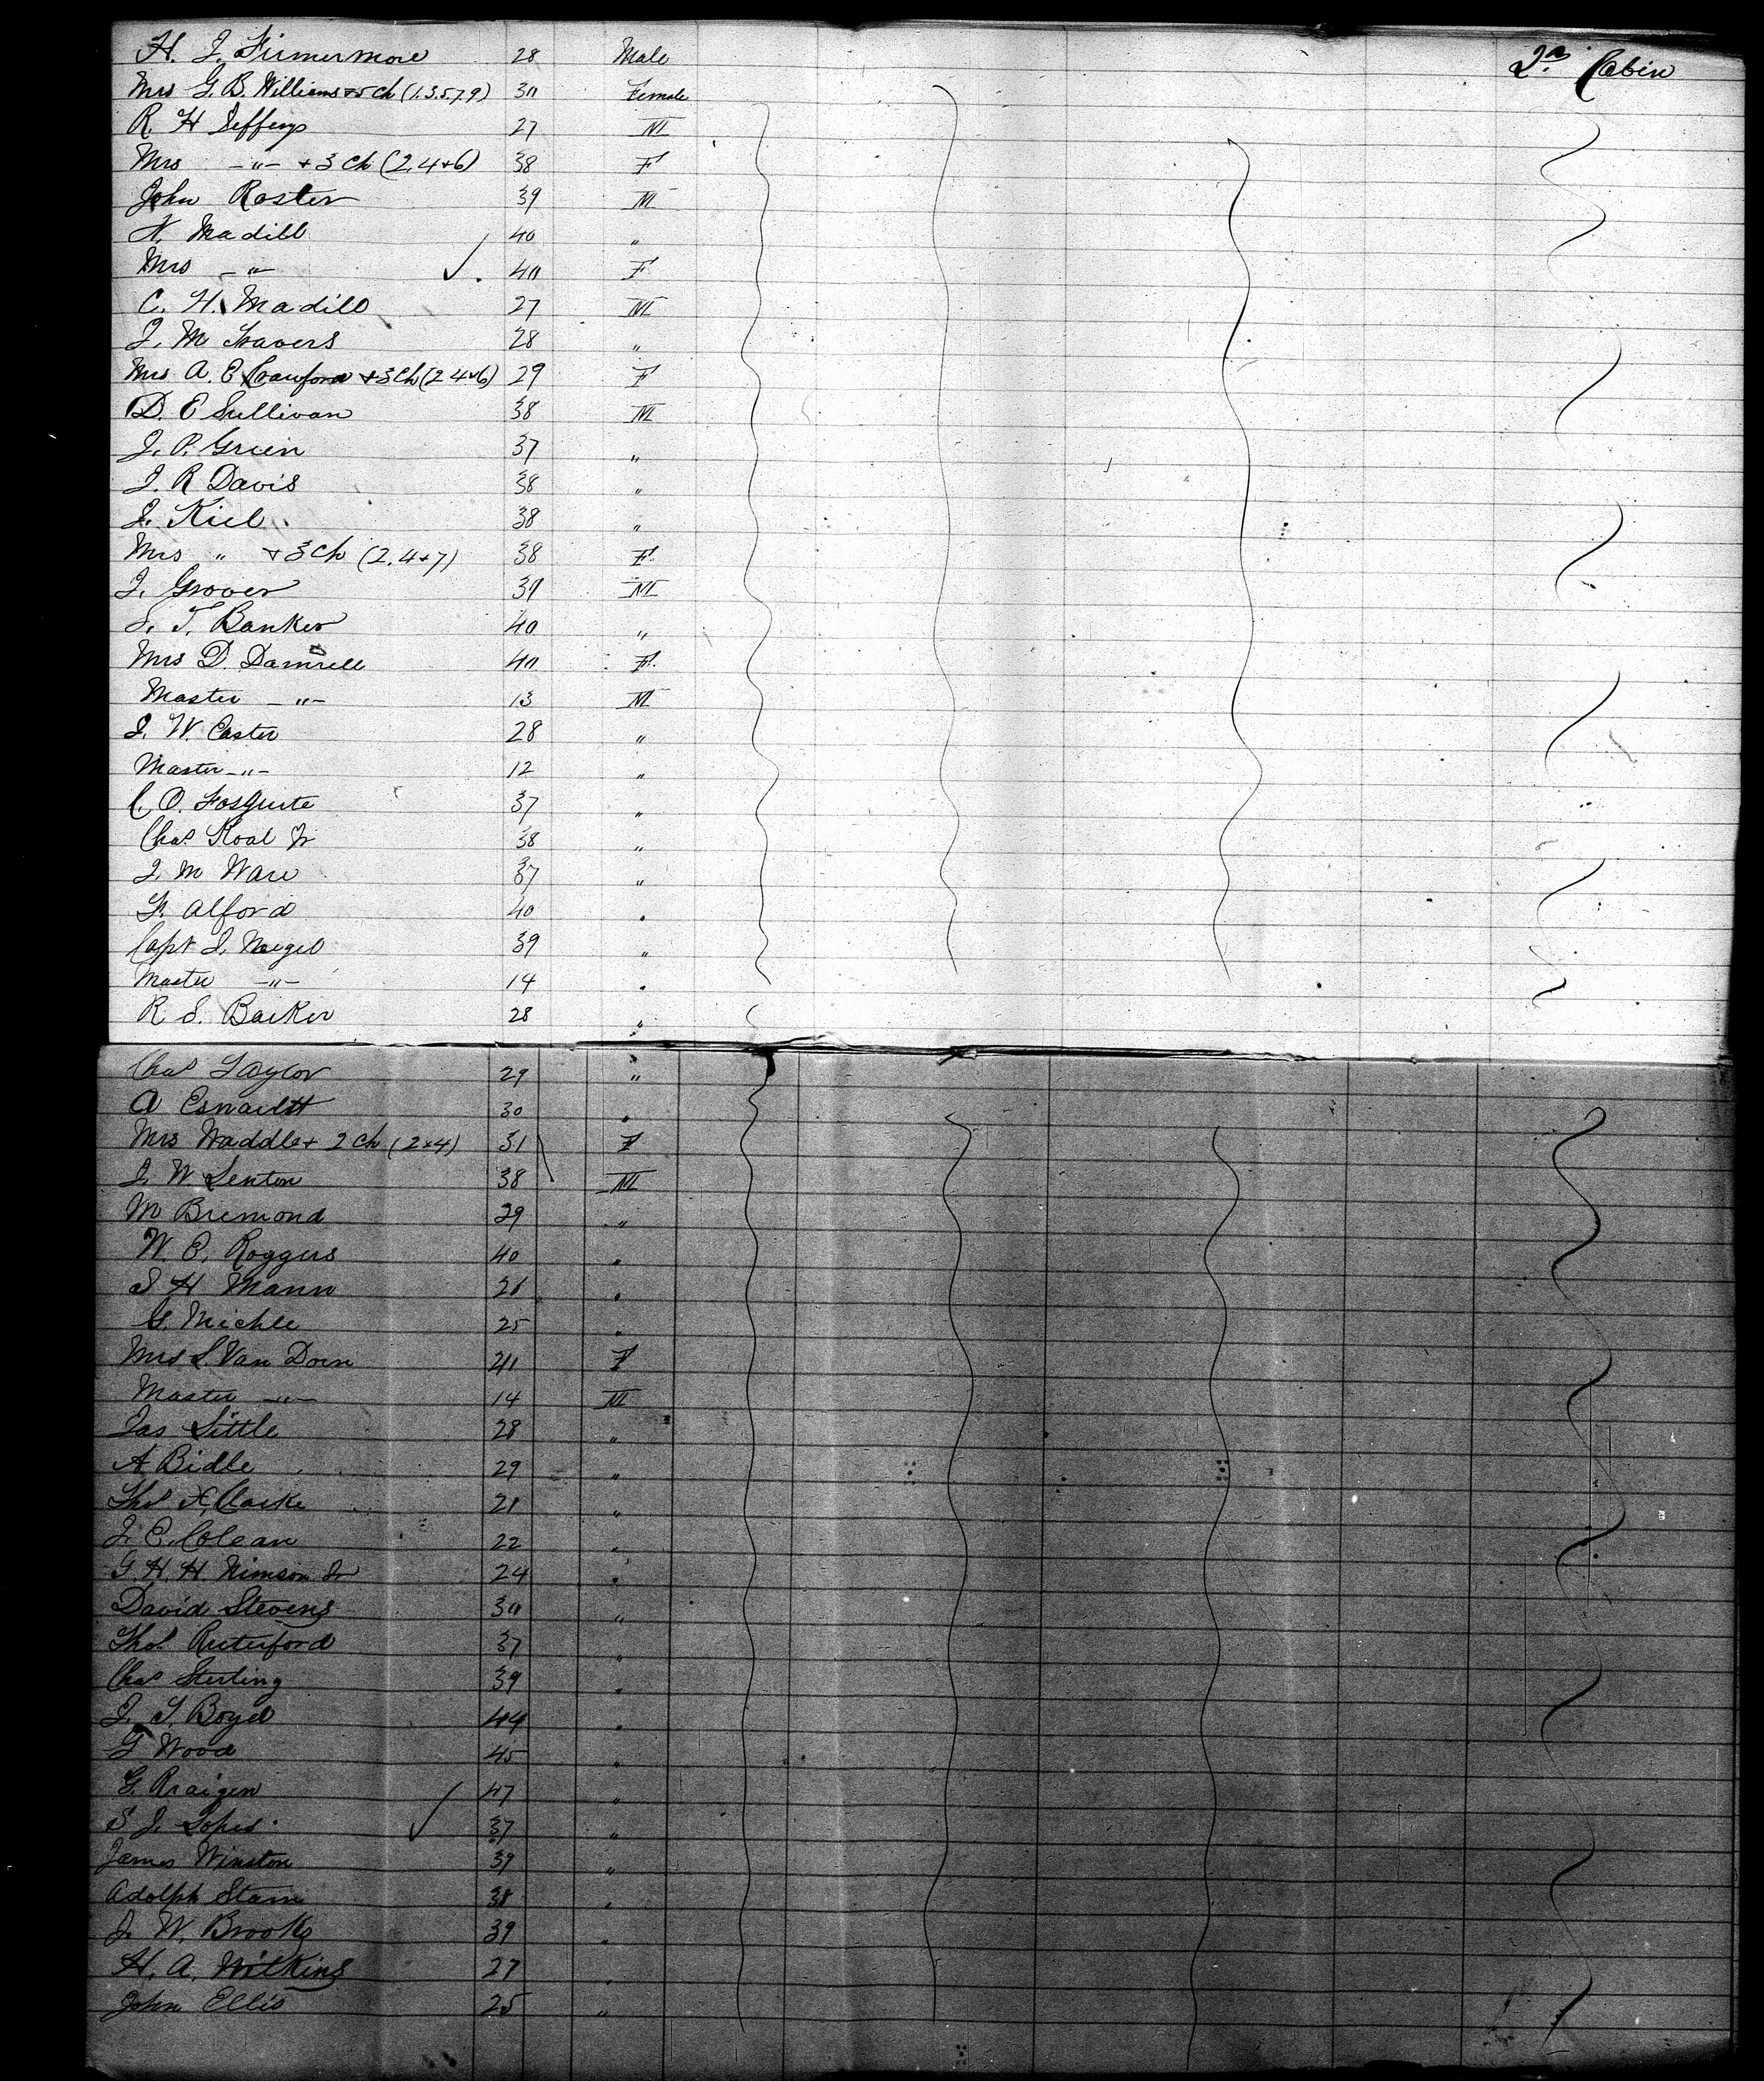 H. J. Finnermore 28 Male 2nd Cabin
Mrs G. B. Williams + 5 ch (1.3.5.7.9) 30 Female
R. H Jefferys 27 M
Mrs -"- + 3 ch (2, 4 + 6) 38 F
John Roster 39 M
N. Madill 40 "
Mrs -"- 40 F
C. H. Madill 27 M
J. M Travers 28 "
Mrs A. E Crawford + 3 ch (2 4 + 6) 29 F
D. E Sullivan 38 M
J. P. Green 37 "
J. R Davis 38 "
J. Kiel 38 "
Mrs " + 3 ch (2, 4 + 7) 38 F
J. Grover 39 M
S. T. Banker 40 "
Mrs D. Damrell 40 F
Master -"- 13 M
J. W. Caster 28 "
Master -"- 12 "
C. O. Fosgute 37 "
Chas Koal Jr 38 "
J. M Ware 37 "
F. Alford 40 "
Capt J. Nagel 39 "
Master -"- 14 "
R S. Barker 28 "
Chas Taylor 29 "
A Esnailtt 30 "
Mrs Waddle + 2 ch (2 + 4) 31 F
J. W. Lenton 38 M
M Bremond 29 "
W E. Roggers 40 "
S H Mann 26 "
G. Michle 25 "
Mrs L. Van Dorn 41 F
Master -"- 14 M
Jas Little 28 "
A Bidle 29 "
Thos H. Clarke 21 "
J. E. Colean 22 "
G. H. H. Nimson Jr 24 "
David Stevens 30 "
Thos Ruterford 37 "
Chas Sterling 39 "
J. T. Boyd 44 "
G Wood 45 "
G. Kraigen 47 "
S J. Lopes 37 "
James Winston 39 "
Adolph Stam 38 "
J. W. Brooks 39 "
H. A. Wilkins 27 "
John Ellis 25 "